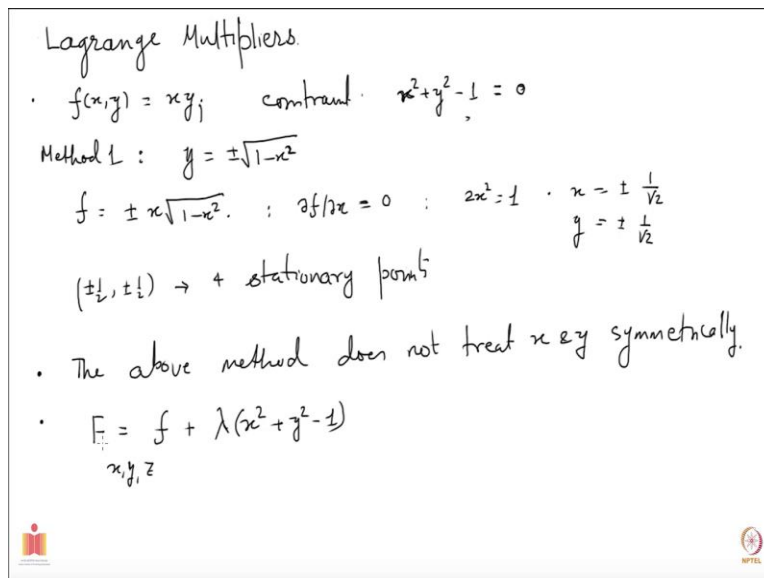 Lagrange Multipliers.
· f(x,y) = xy; contraint. x²+y²-1 = 0
Method 1 : y = ±√1-x²
f = ± x√1-x². : ∂f/∂x = 0 : 2x²=1 · x = ± 1/√2
y = ± 1/√2
(±1/2, ±1/2) → 4 stationary points
· The above method does not treat x & y symmetrically.
· F = f + λ(x²+y²-1)
x,y,z
NPTEL